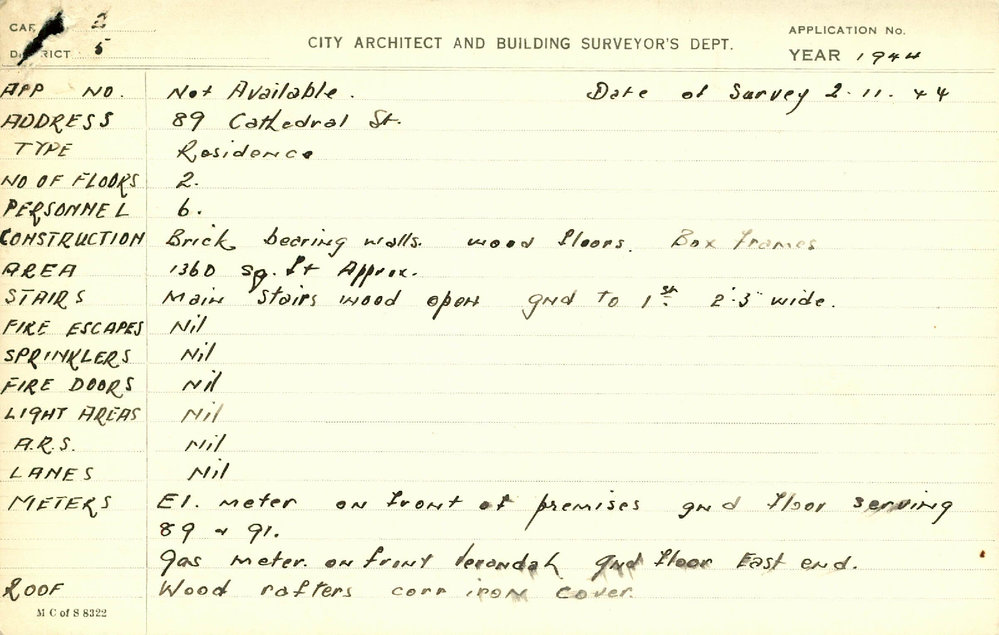 2
5
CITY ARCHITECT AND BUILDING SURVEYOR'S DEPT.
APPLICATION No.
YEAR 1944
APP NO. Not Available. Date of Survey 2.11.44
ADDRESS 89 Cathedral St.
TYPE Residence
NO OF FLOORS 2.
PERSONNEL 6.
CONSTRUCTION Brick bearing walls. wood floors. Box frames
AREA 1360 sq. ft Approx.
STAIRS Main Stairs wood open gnd to 1st 2'.3" wide.
FIRE ESCAPES Nil
SPRINKLERS Nil
FIRE DOORS Nil
LIGHT AREAS Nil
A.R.S. Nil
LANES Nil
METERS El. meter on front of premises gnd floor serving
89 & 91.
Gas meter. on front verandah gnd floor East end.
ROOF Wood rafters corr iron cover.
M C of S 8322